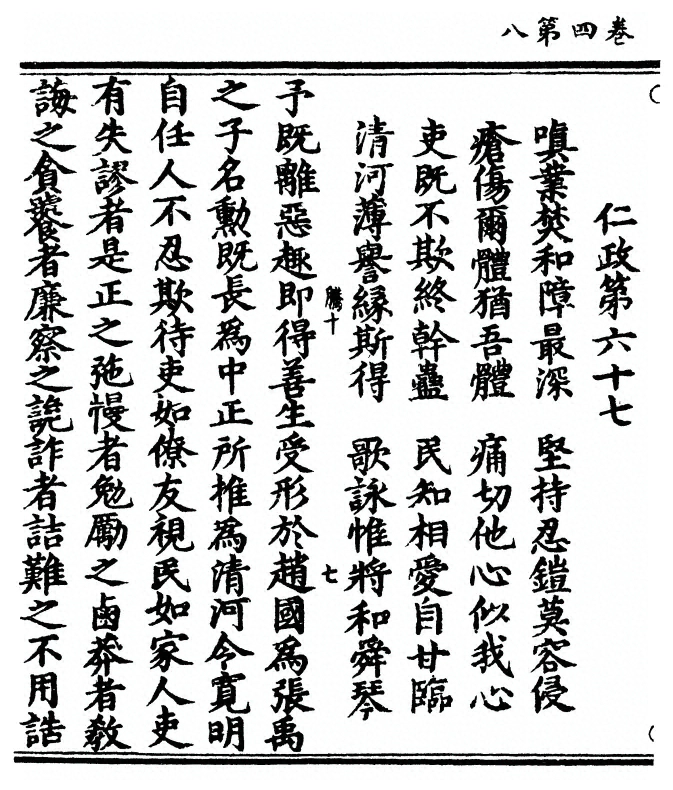 卷四第八
仁政第六十七
嗔業焚和障最深 堅持忍鎧莫容侵
瘡傷爾體猶吾體 痛切他心似我心
吏既不欺終幹蠱 民知相愛自甘臨
清河薄譽緣斯得 歌詠惟將和舜琴
騰十 七
予既離惡趣即得善生受形於趙國為張禹
之子名勳既長為中正所推為清河令寬明
自任人不忍欺待吏如僚友視民如家人吏
有失謬者是正之弛慢者勉勵之鹵莽者敎
誨之貪饕者廉察之詭詐者詰難之不用誥